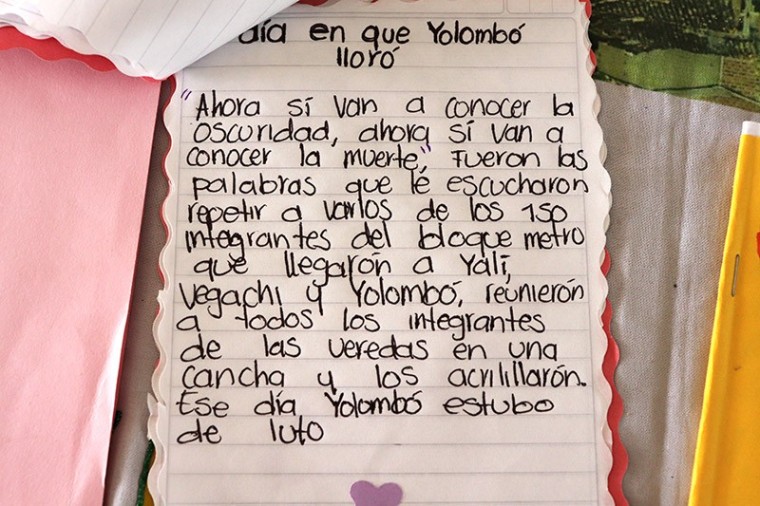 día en que Yolombó
lloró
"Ahora sí van a conocer la
oscuridad, ahora sí van a
conocer la muerte", fueron las
palabras que le escucharon
repetir a varios de los 150
integrantes del bloque metro
que llegarón a Yalí,
Vegachi y Yolombó, reunierón
a todos los integrantes
de las veredas en una
cancha y los acrilillarón.
Ese día Yolombó estubo
de luto